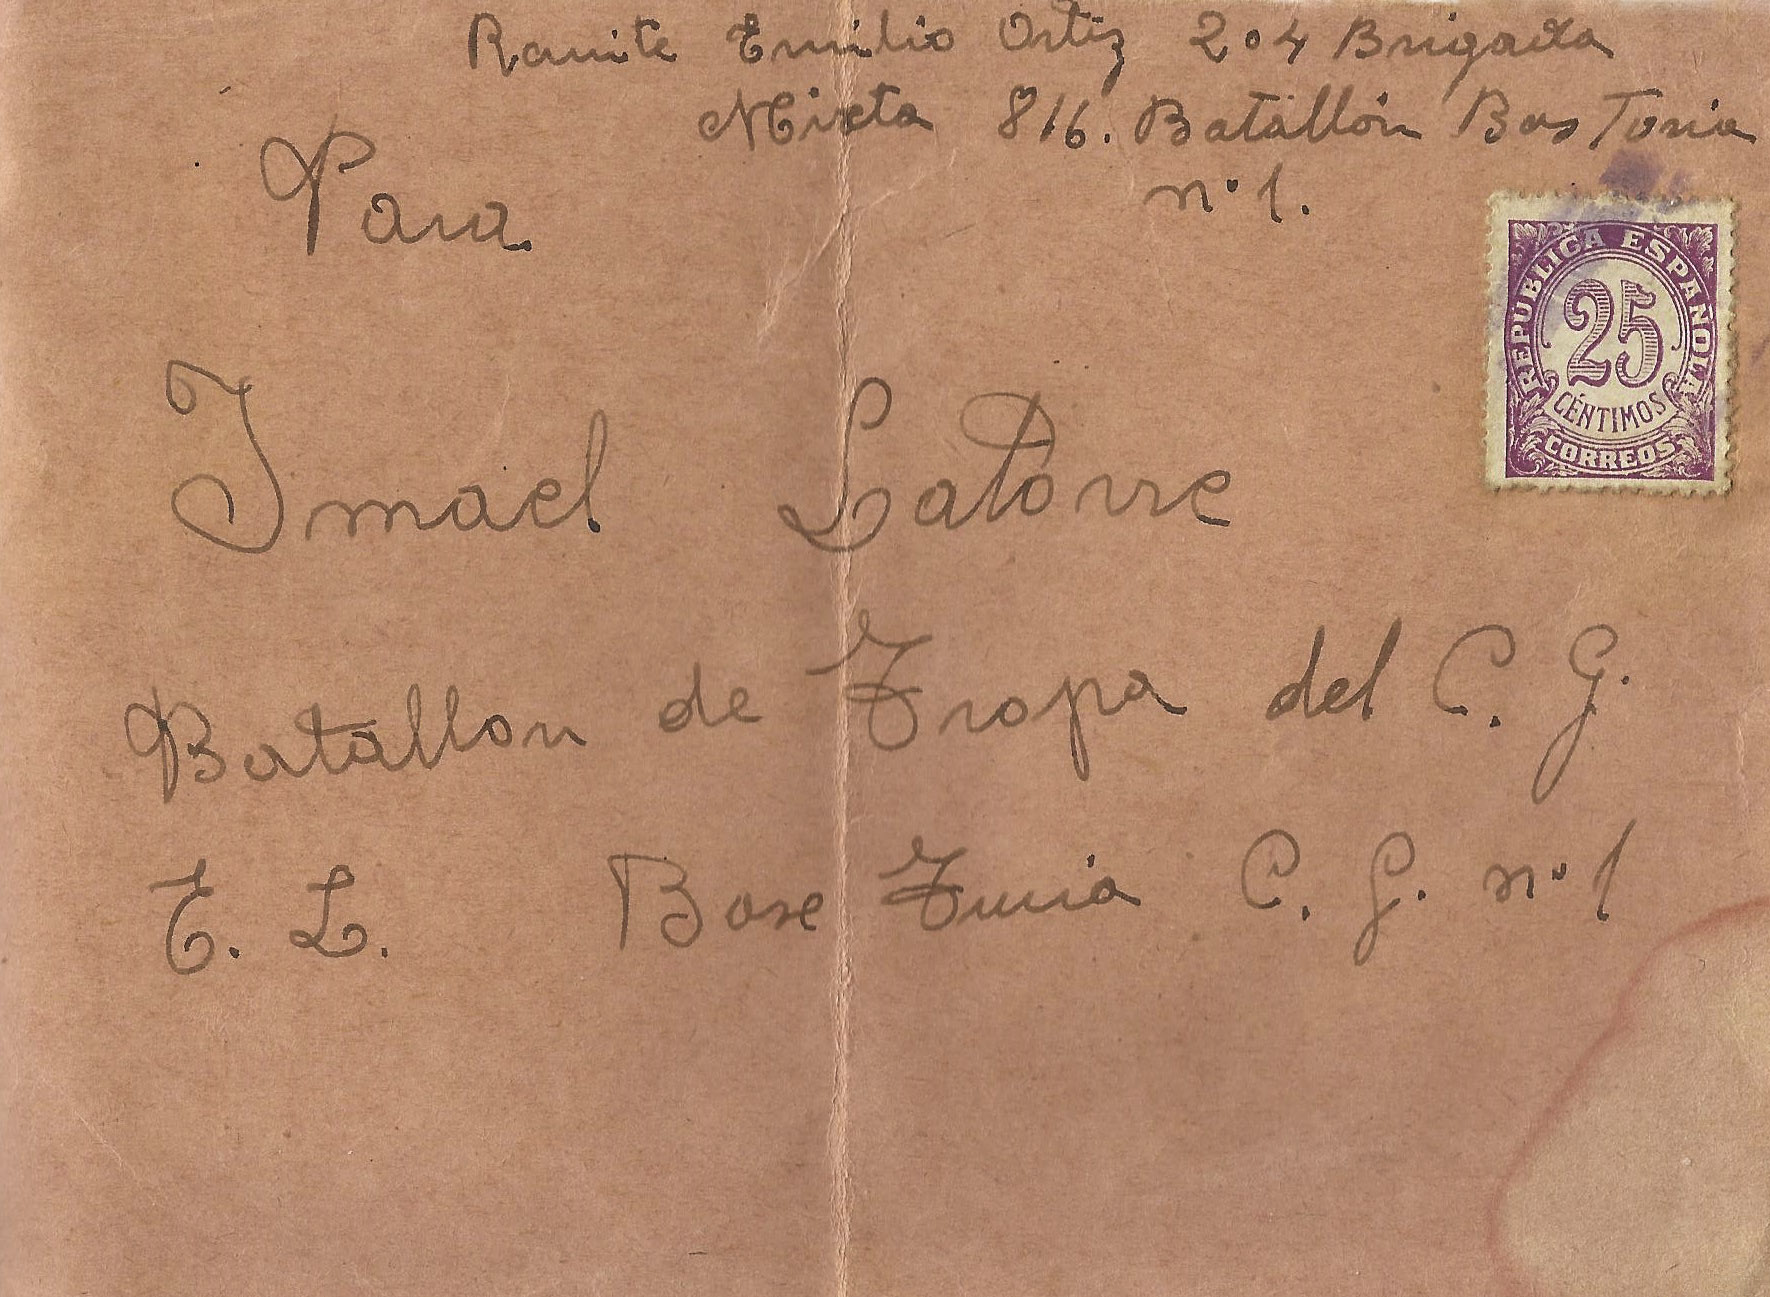 Ramite Emilio Ortiz 204 Brigada
Mixta 816. Batallón Bas Turia
nº 1.
Para
REPUBLICA ESPAÑOLA
25
CÉNTIMOS
CORREOS
Ismael LaTorre
Batallon de Tropa del C. G.
E. L. Base Turia C. G. nº 1